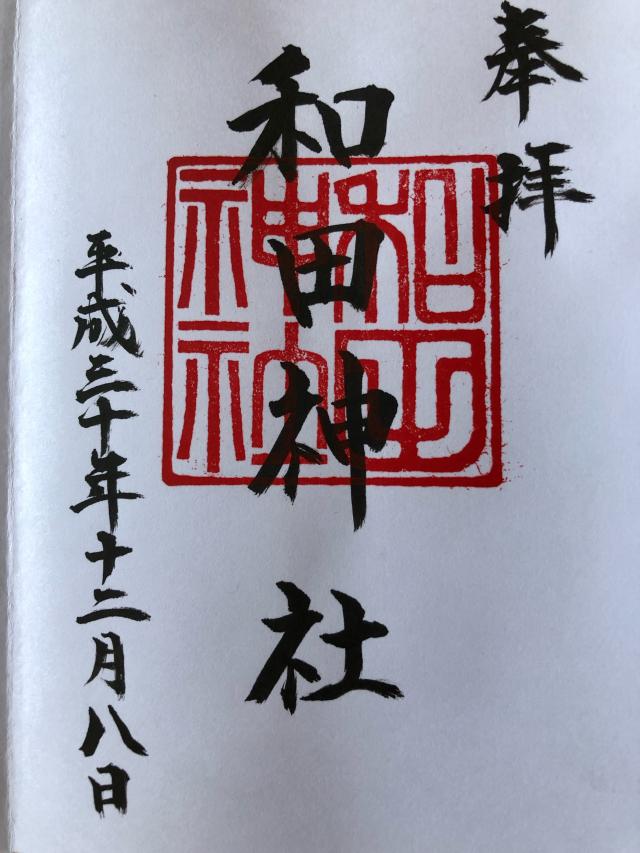 奉拝
和田神社
和田神社
平成三十年十二月八日